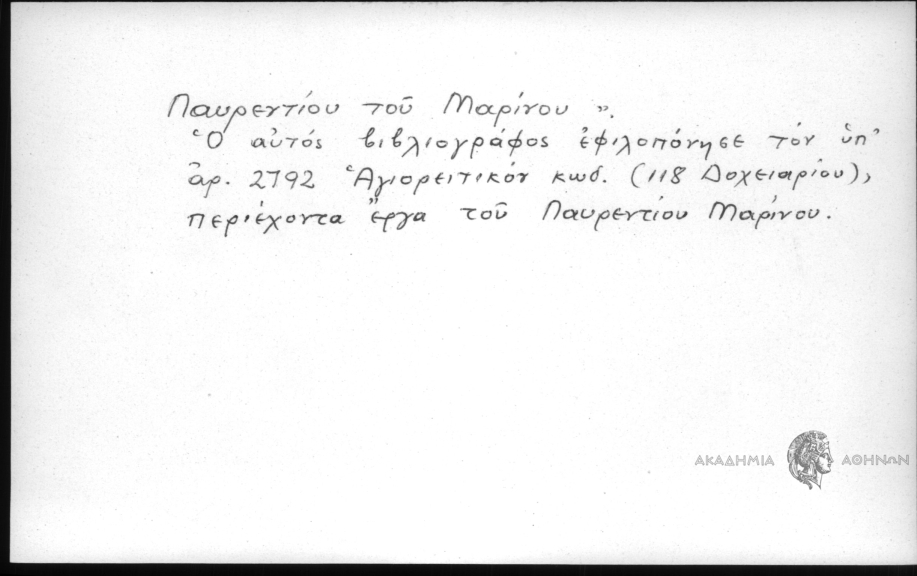 Λαυρεντίου τοῦ Μαρίνου ».
Ὁ αὐτός βιβλιογράφος ἐφιλοπόνησε τόν ὑπ'
ἀρ. 2792 Ἁγιορειτικόν κωδ. (118 Δοχειαρίου),
περιέχοντα ἔργα τοῦ Λαυρεντίου Μαρίνου.
ΑΚΑΔΗΜΙΑ ΑΘΗΝΩΝ